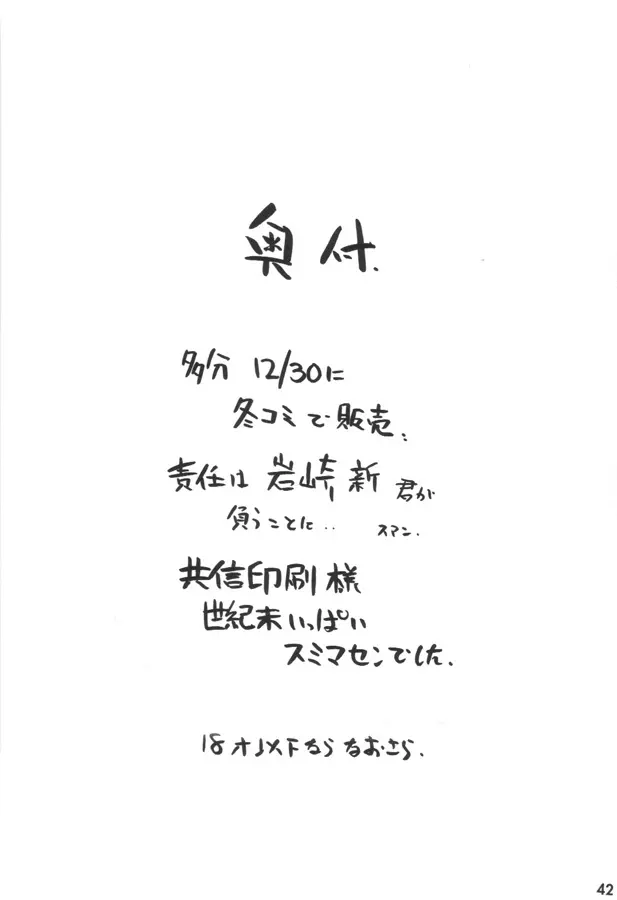 奥付.
多分 12/30に
冬コミで販売.
責任は 岩崎 新 君が
負うことに‥ スマン.
共信印刷様
世紀末いっぱい
スミマセンでした.
18才以下ならなおさら.
42